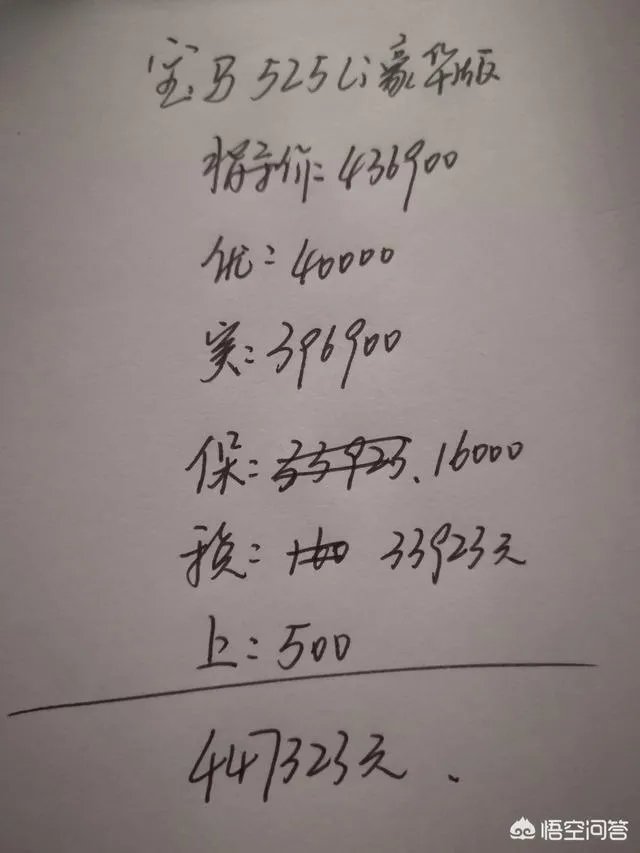 宝马525Li豪华版
指导价:436900
优:40000
实:396900
保:33923.16000
税:160 33923元
上:500
447323元.
悟空问答